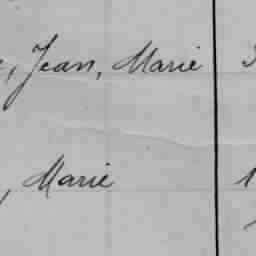 , Jean, Marie
, Marie